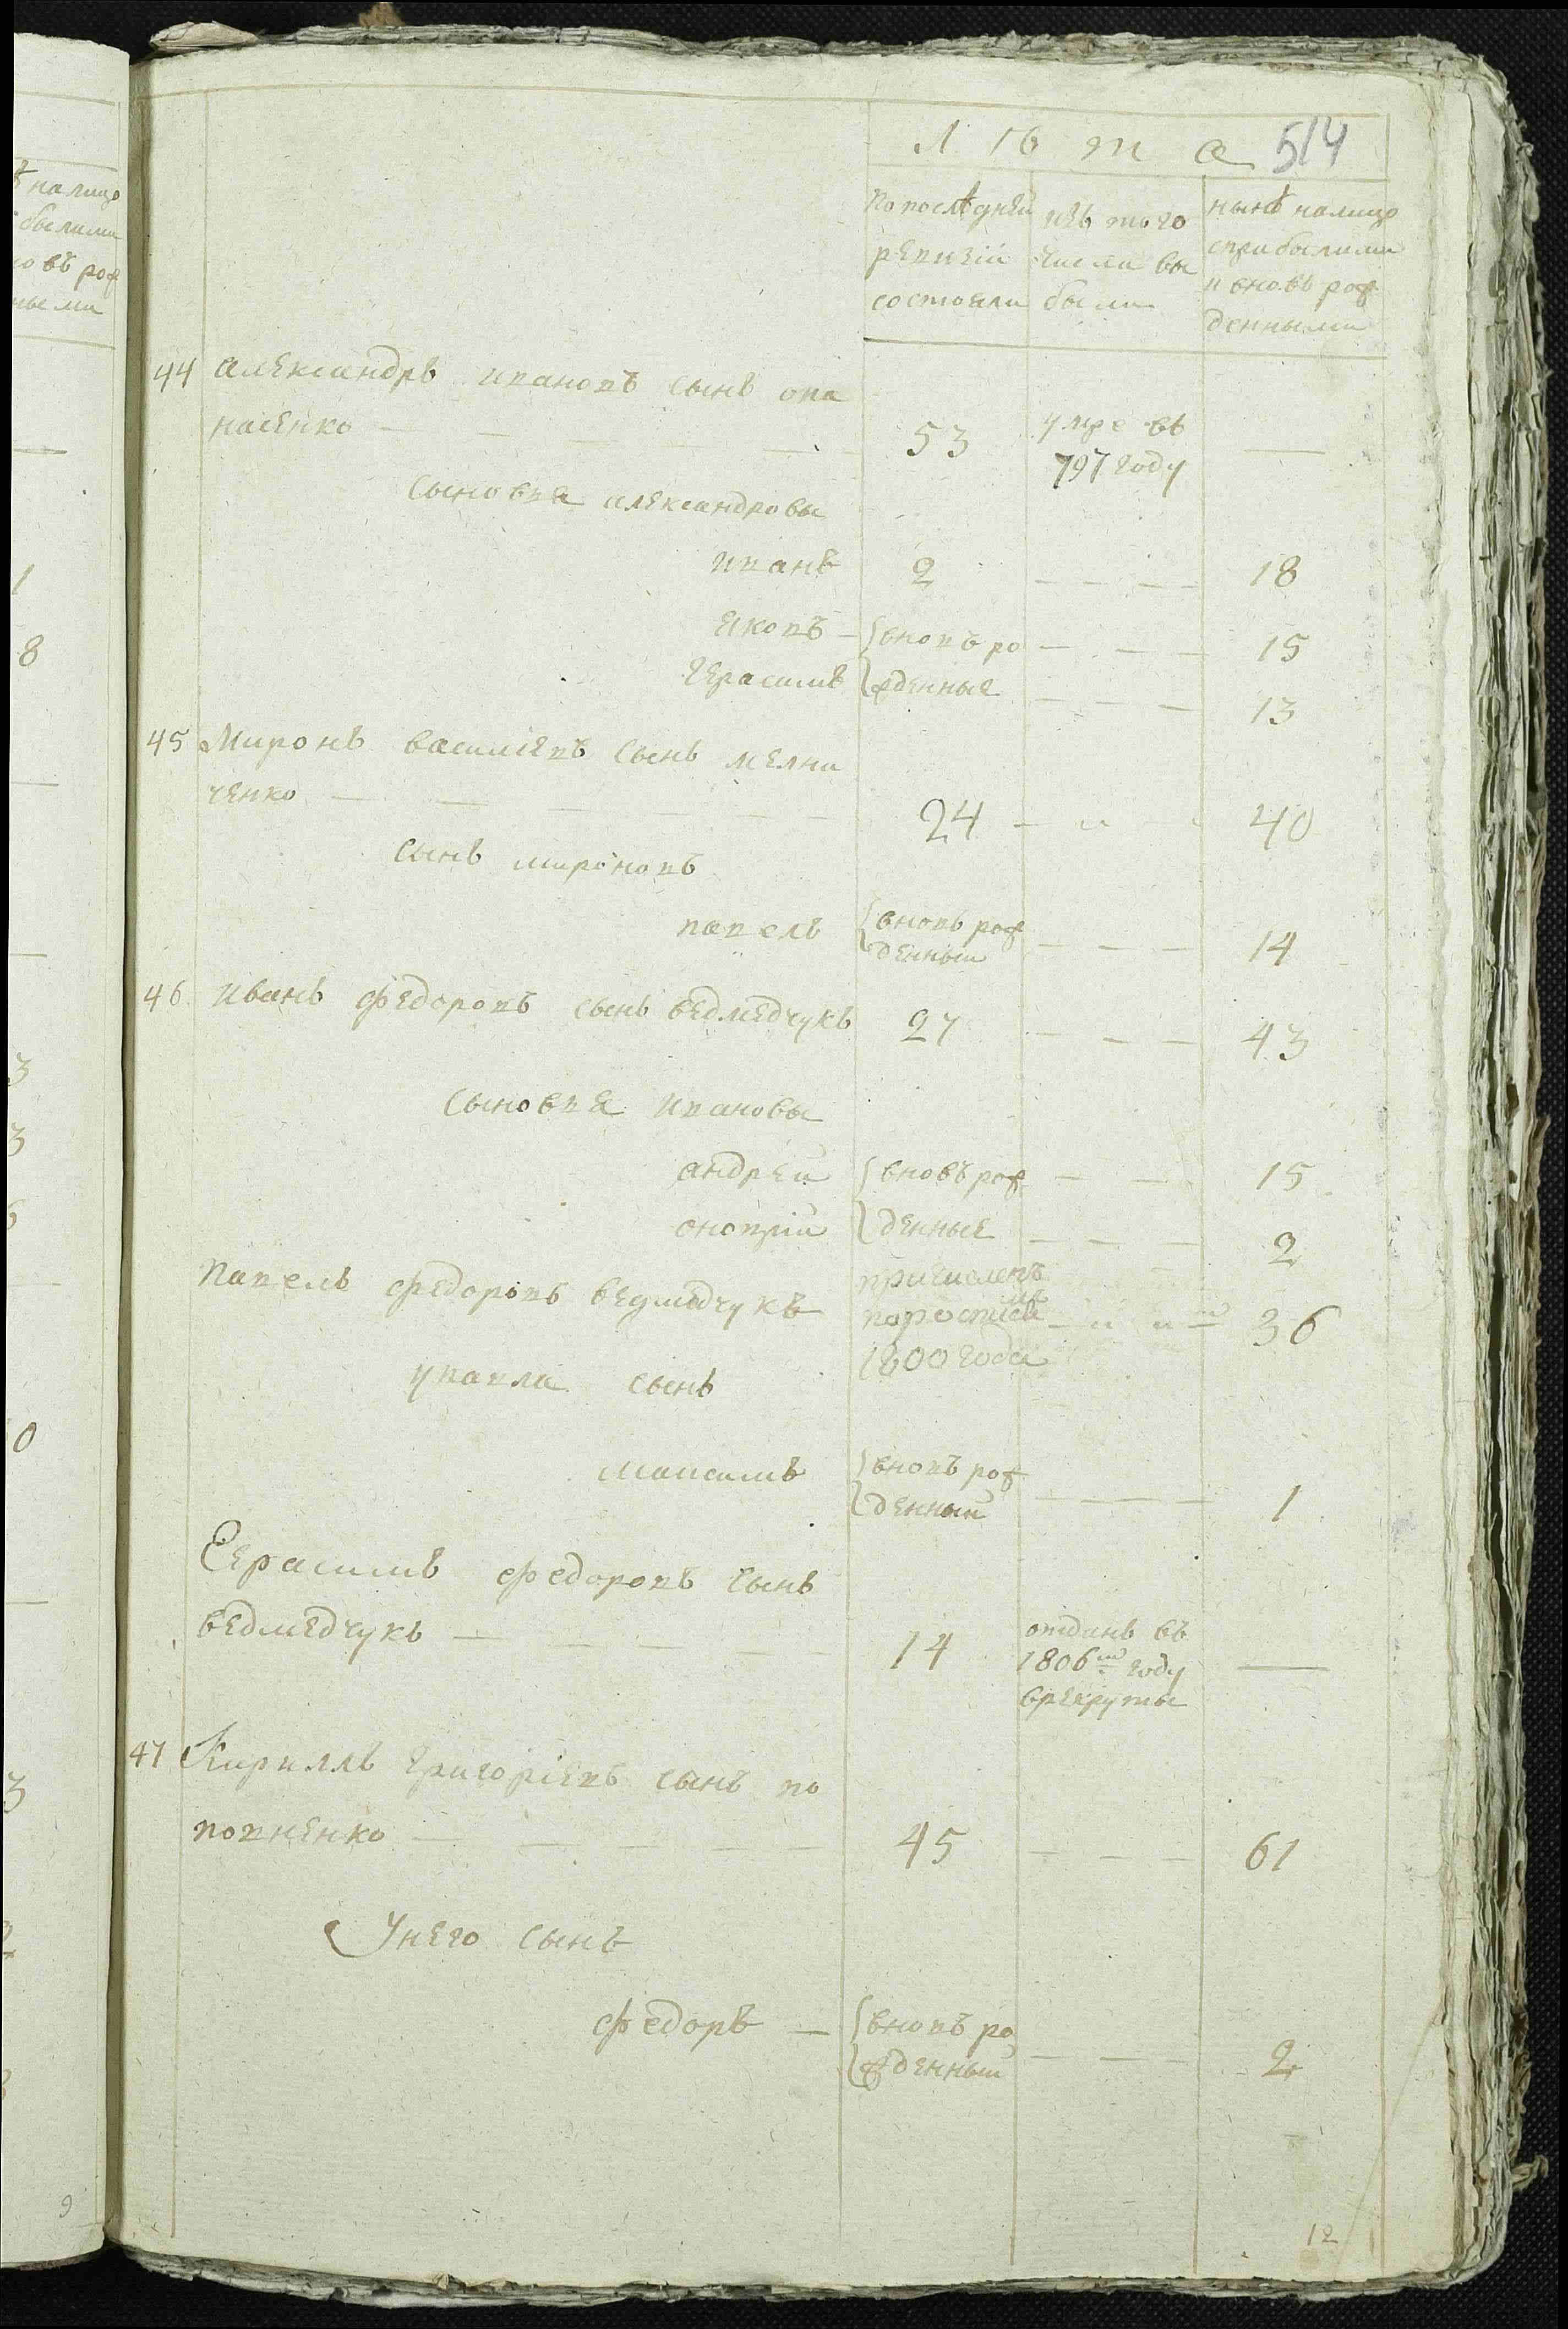 лѣта 514
по послѣдней ревизіи состояли
изъ того числа выбыли
нынѣ налицо съ прибылыми и вновь рожденными
44 Александръ Ивановъ сынъ Опа
насенко — 53 умре въ 797 году —
Сыновья Александровы
Иванъ 2 — 18
Яковъ — вновъ ро — 15
Герасимъ жденные — 13
45 Миронъ Василіевъ сынъ Мелни
ченко — 24 — 40
Сынъ Мироновъ
Павелъ вновъ рожденный — 14
46 Иванъ Федоровъ сынъ Ведмедчукъ 27 — 43
Сыновья Ивановы
Андрей вновъ рож — 15
Онопрій денные — 2
Павелъ Федоровъ Ведмедчукъ причисленъ 1800 года — 36
У Павла сынъ
Максимъ вновъ рожденный — 1
Герасимъ Федоровъ сынъ
Ведмедчукъ — 14 отданъ въ 1806м году врекруты —
47 Кирилъ Григоріевъ сынъ По
повненко — 45 — 61
Унего сынъ
Федоръ — вновъ рожденный — 2
12